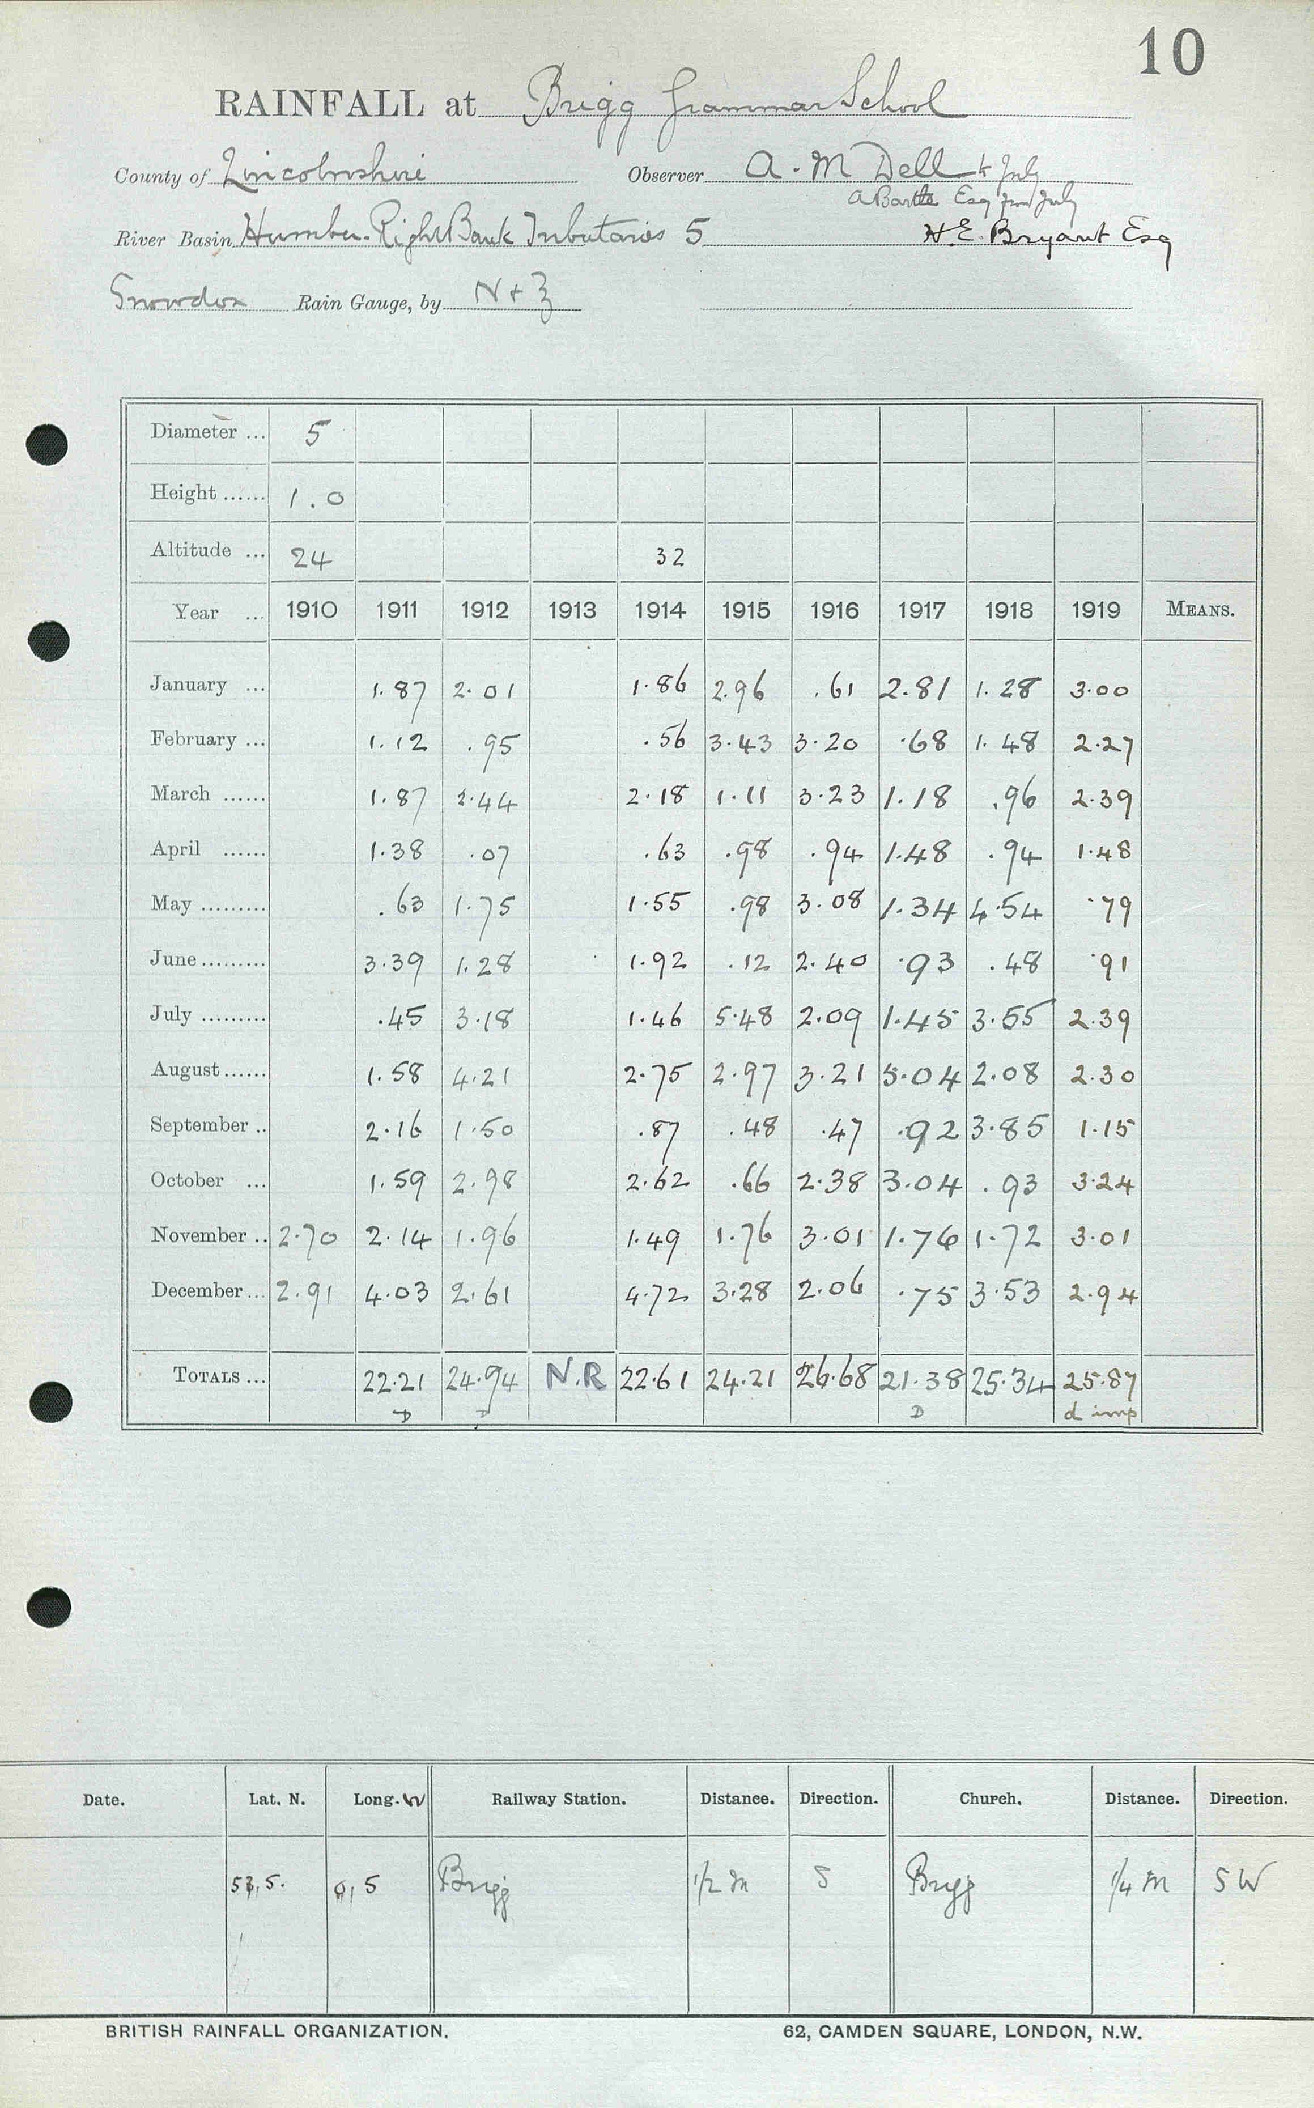 10
RAINFALL at Brigg Grammar School
County of Lincolnshire Observer A. M Dell to July
A Bartle Esq from July
River Basin Humber. Right Bank Tributaries 5 H. E. Bryant Esq
Snowdon Rain Gauge, by N + Z
Diameter ... 5
Height ...... 1.0
Altitude ... 24 32
Year ... 1910 1911 1912 1913 1914 1915 1916 1917 1918 1919 MEANS.
January ... 1.87 2.01 1.86 2.96 .61 2.81 1.28 3.00
February ... 1.12 .95 .56 3.43 3.20 .68 1.48 2.27
March ...... 1.87 2.44 2.18 1.11 3.23 1.18 .96 2.39
April ...... 1.38 .07 .63 .98 .94 1.48 .94 1.48
May ......... .63 1.75 1.55 .98 3.08 1.34 4.54 .79
June ......... 3.39 1.28 1.92 .12 2.40 .93 .48 .91
July ......... .45 3.18 1.46 5.48 2.09 1.45 3.55 2.39
August ...... 1.58 4.21 2.75 2.97 3.21 5.04 2.08 2.30
September .. 2.16 1.50 .87 .48 .47 .92 3.85 1.15
October ... 1.59 2.98 2.62 .66 2.38 3.04 .93 3.24
November .. 2.70 2.14 1.96 1.49 1.76 3.01 1.76 1.72 3.01
December ... 2.91 4.03 2.61 4.72 3.28 2.06 .75 3.53 2.94
TOTALS ... 22.21 24.94 N.R 22.61 24.21 26.68 21.38 25.34 25.87
D D D d imp
Date. Lat. N. Long. W Railway Station. Distance. Direction. Church. Distance. Direction.
53,5. 0,5 Brigg 1/2 m S Brigg 1/4 m SW
BRITISH RAINFALL ORGANIZATION. 62, CAMDEN SQUARE, LONDON, N.W.